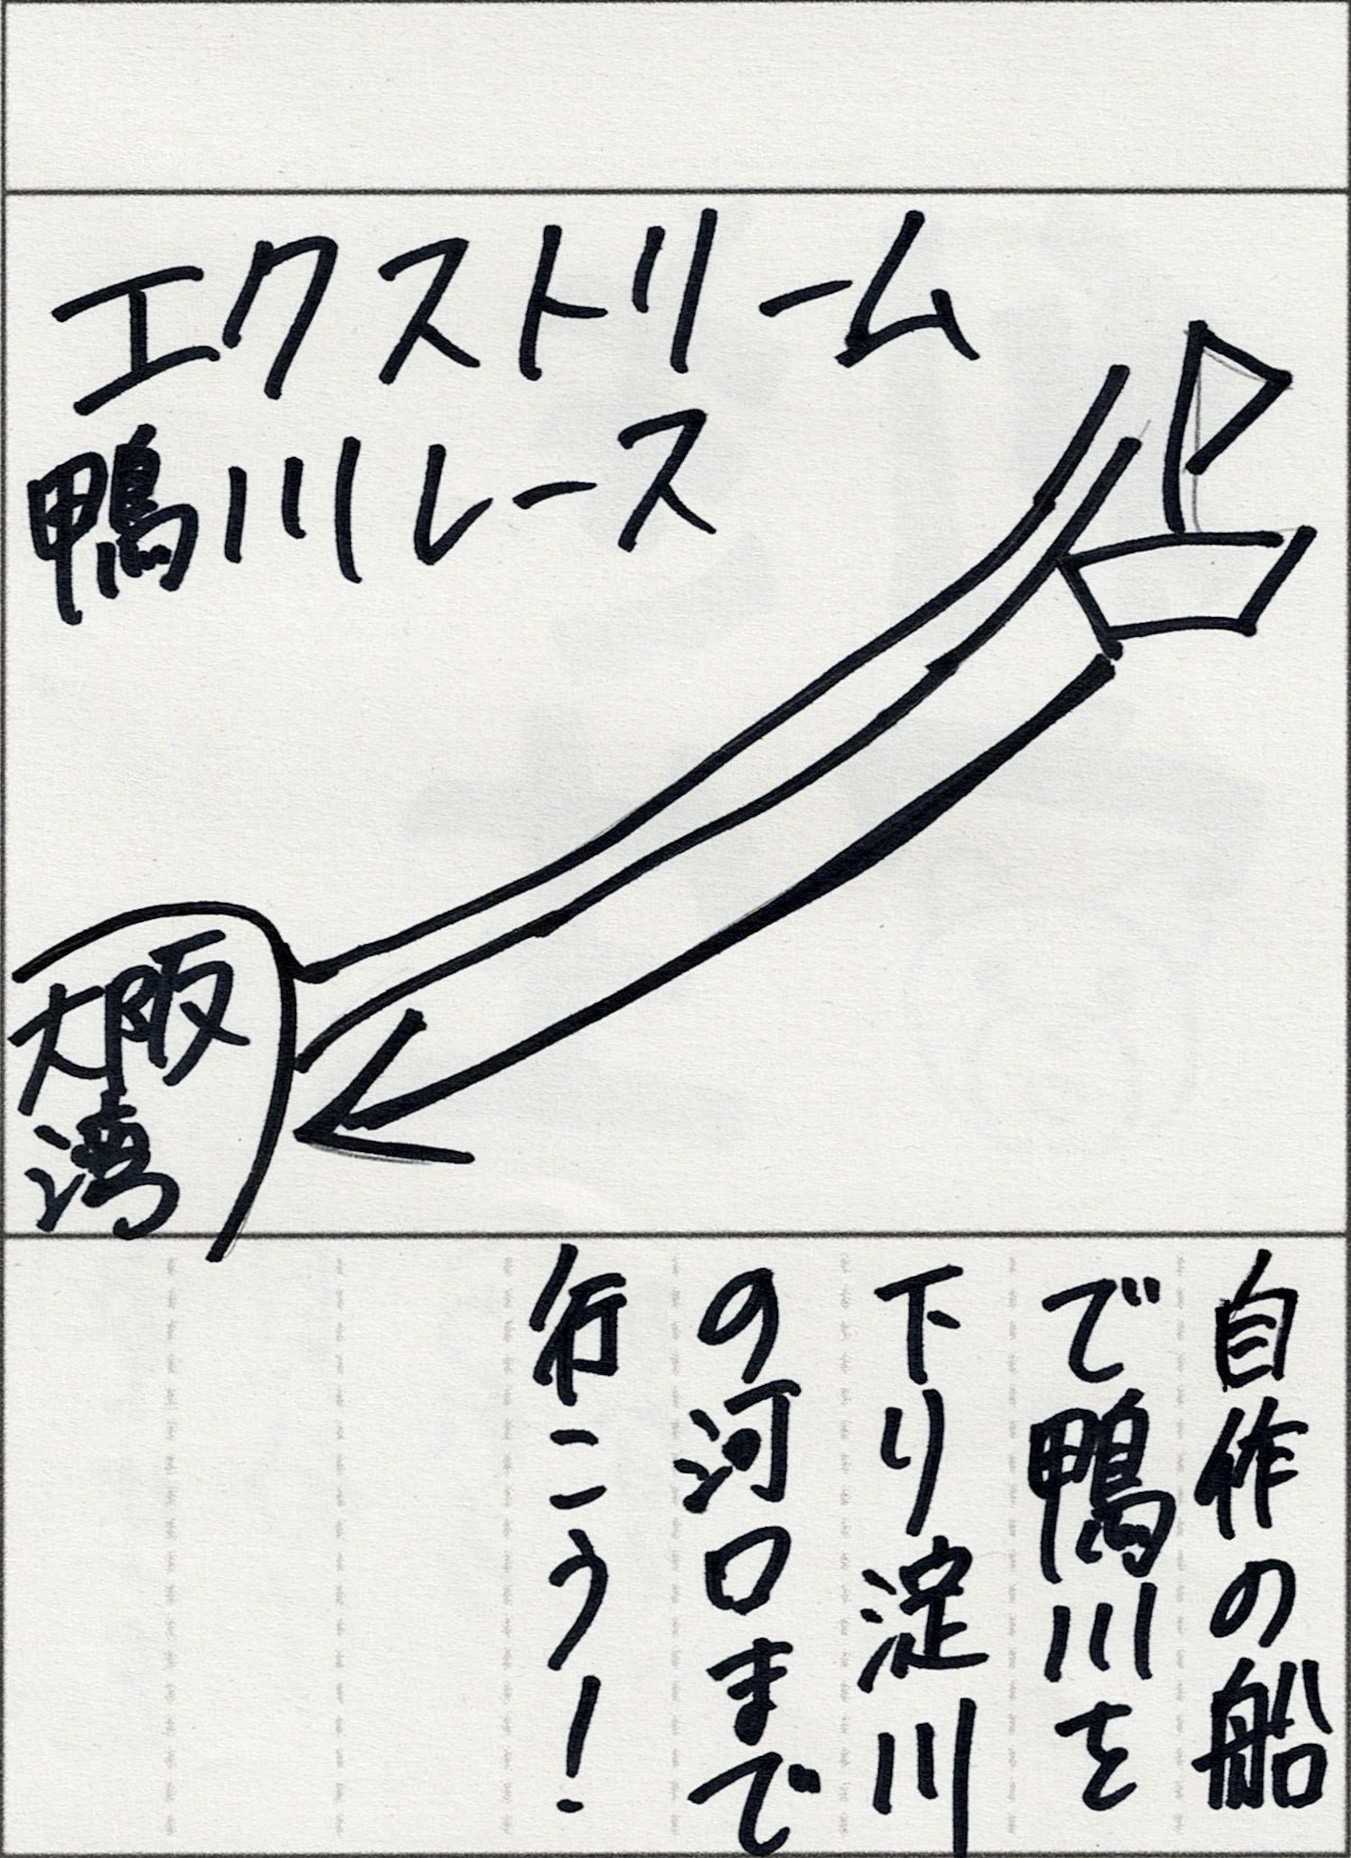 エクストリーム
鴨川レース
大阪
湾
自作の船
で鴨川を
下り淀川
の河口まで
行こう！